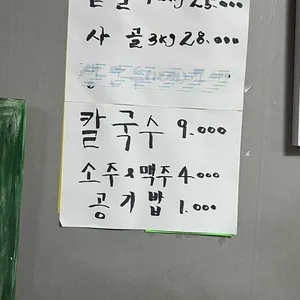 사골 3kg 28.000
칼국수 9.000
소주 & 맥주 4.000
공기밥 1.000